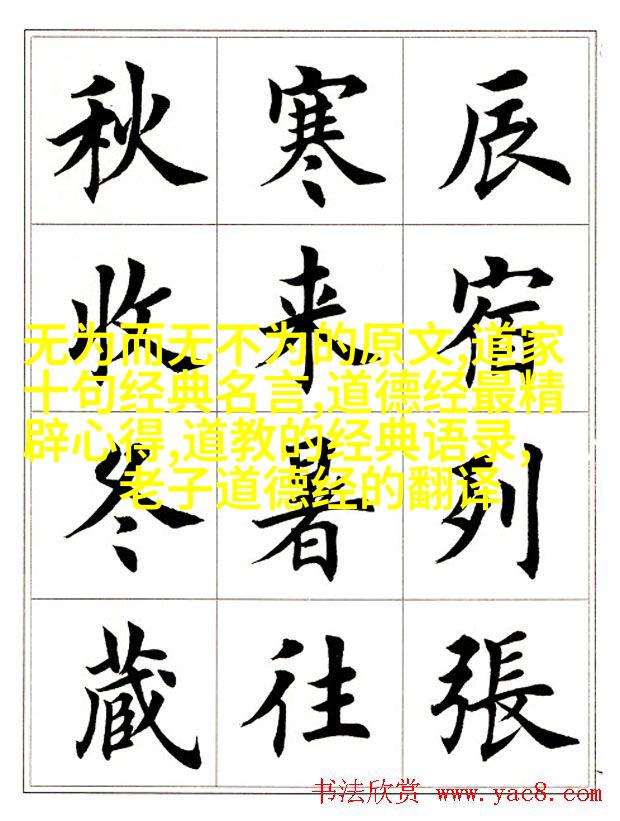 辰宿列張
寒来暑往
秋收冬藏
无为而无不为的原文,道家
十句经典名言,道德经最精
辟心得,道教的经典语录,
老子道德经的翻译
书法欣赏 www.yac8.com